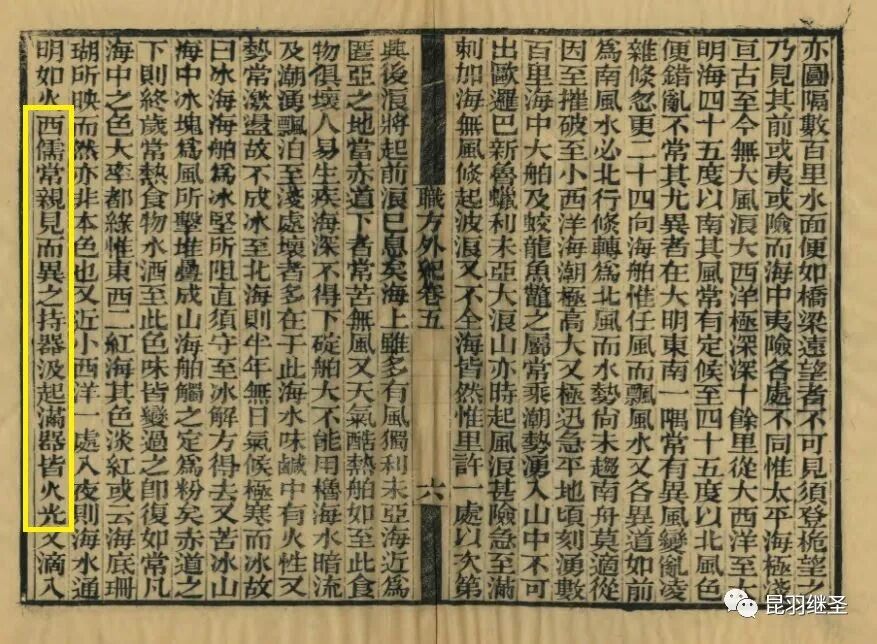 亦圓隔數百里水面便如橋梁遠望者不可見須登桅望之
乃見其前或夷或險而海中夷險各處不同惟太平海極淺
亘古至今無大風浪大西洋極深深十餘里從大西洋至大
明海四十五度以南其風常有定候至四十五度以北風色
便錯亂不常其尤異者在大明東南一隅常有異風變亂凌
雜倐忽更二十四向海舶惟任風而飄風水又各異道如前
為南風水必北行倐轉為北風而水勢尚未趨南舟莫適從
因至摧破至小西洋海潮極高大又極迅急平地頃刻湧數
百里海中大舶及蛟龍魚鼈之屬常乘潮勢湧入山中不可
出歐邏巴新魯蠟利未亞大浪山亦時起風浪甚險急至滿
刺加海無風倐起波浪又不全海皆然惟里許一處以次第
職方外紀卷五
六
興後浪將起前浪已息矣海上雖多有風獨利未亞海近為
匿亞之地當赤道下者常苦無風又天氣酷熱舶如至此食
物俱壞人易生疾海深不得下碇舶大不能用櫓海水暗流
及潮湧飄泊至淺處壞者多在于此海水味鹹中有火性又
勢常激盪故不成冰至北海則半年無日氣候極寒而冰故
曰冰海海舶為冰堅所阻直須守至冰解方得去又苦冰山
海中冰塊為風所擊堆疊成山海舶觸之定為粉矣赤道之
下則終歲常熱食物水酒至此色味皆變過之卽復如常凡
海中之色大率都緑惟東西二紅海其色淡紅或云海底珊
瑚所映而然亦非本色也又近小西洋一處入夜則海水通
明如火西儒常親見而異之持器汲起滿器皆火光又滴入
昆羽继圣